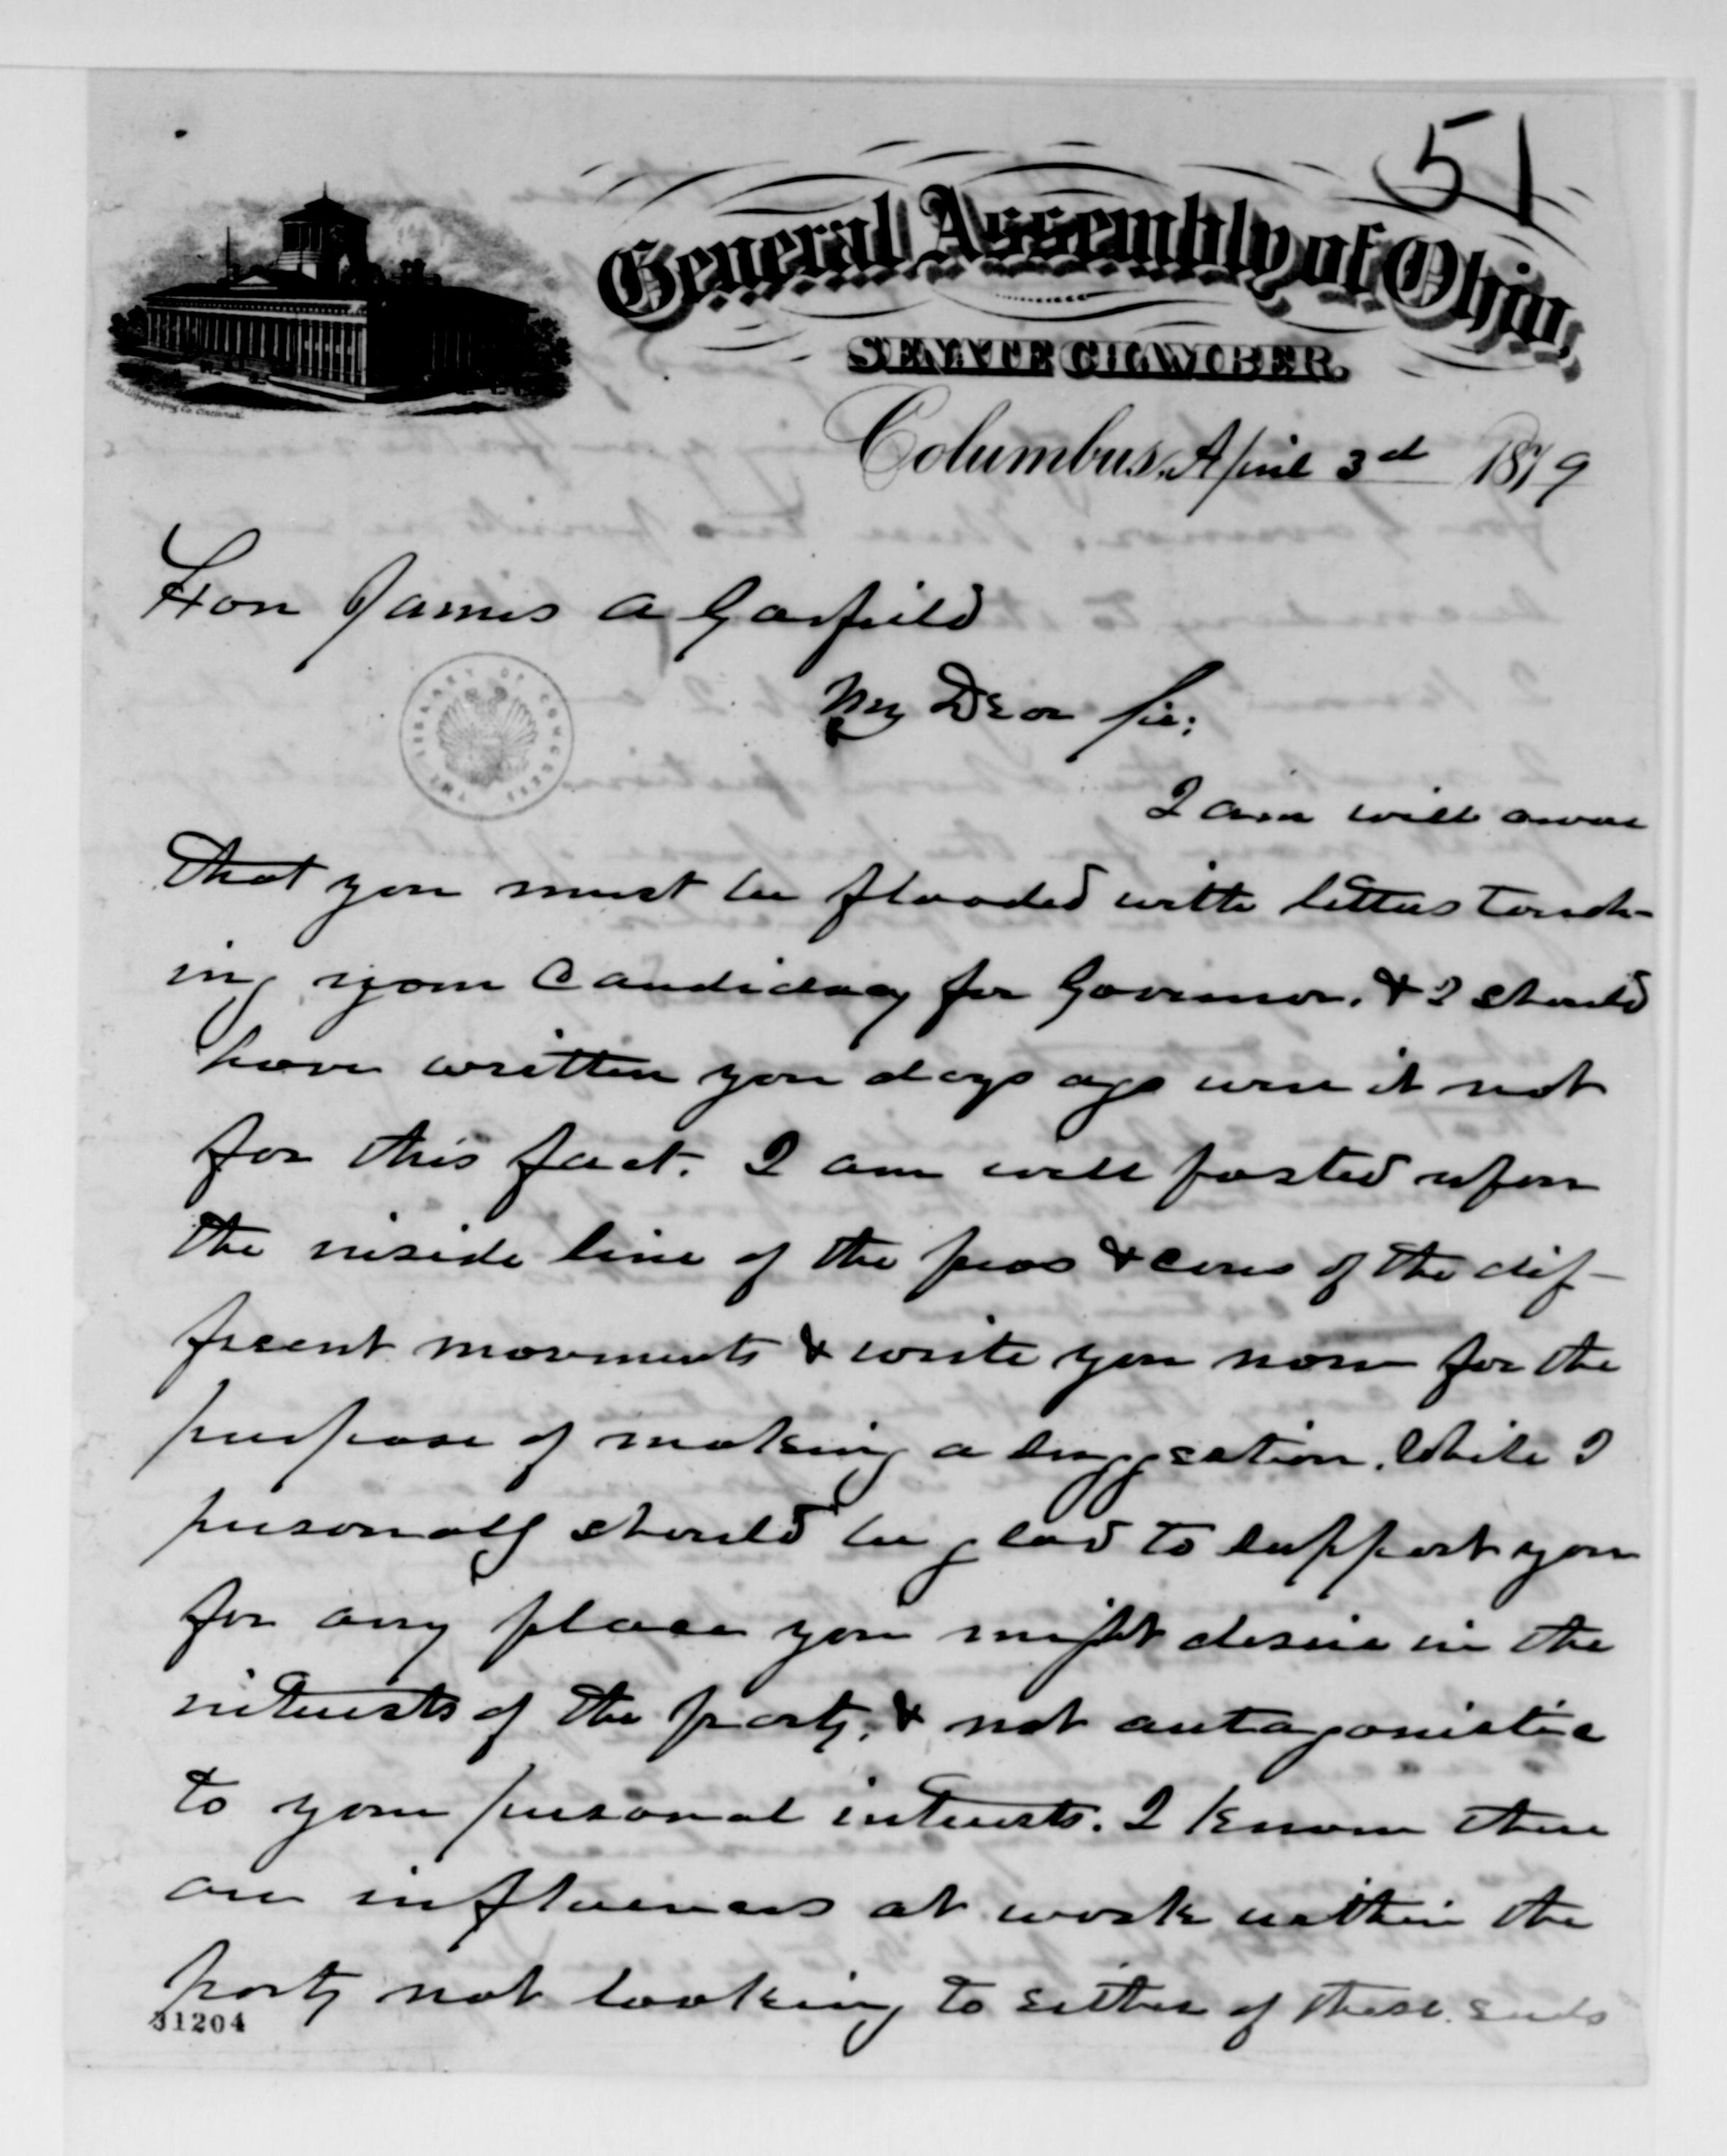 51
General Assembly of Ohio,
SENATE CHAMBER.
Columbus, April 3rd 1879
Hon James A Garfield
My Dear Sir:
THE LIBRARY OF CONGRESS
I am well aware
that you must be flooded with letters touch-
ing your Candidacy for Governor, & I should
have written you days ago were it not
for this fact. I am well posted upon
the inside line of the pros & cons of the dif-
ferent movements & write you now for the
purpose of making a suggestion. While I
personally should be glad to support you
for any place you might desire in the
interests of the party, & not antagonistic
to your personal interests. I know there
are influences at work within the
party not looking to either of these ends
31204